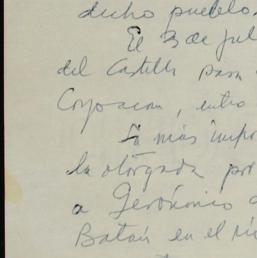 dicho pueblo
El 3 de jul
del Castillo para
Coyoacan, entre
La más impor
la otorgada por
a Jerónimo
Batán en el rí